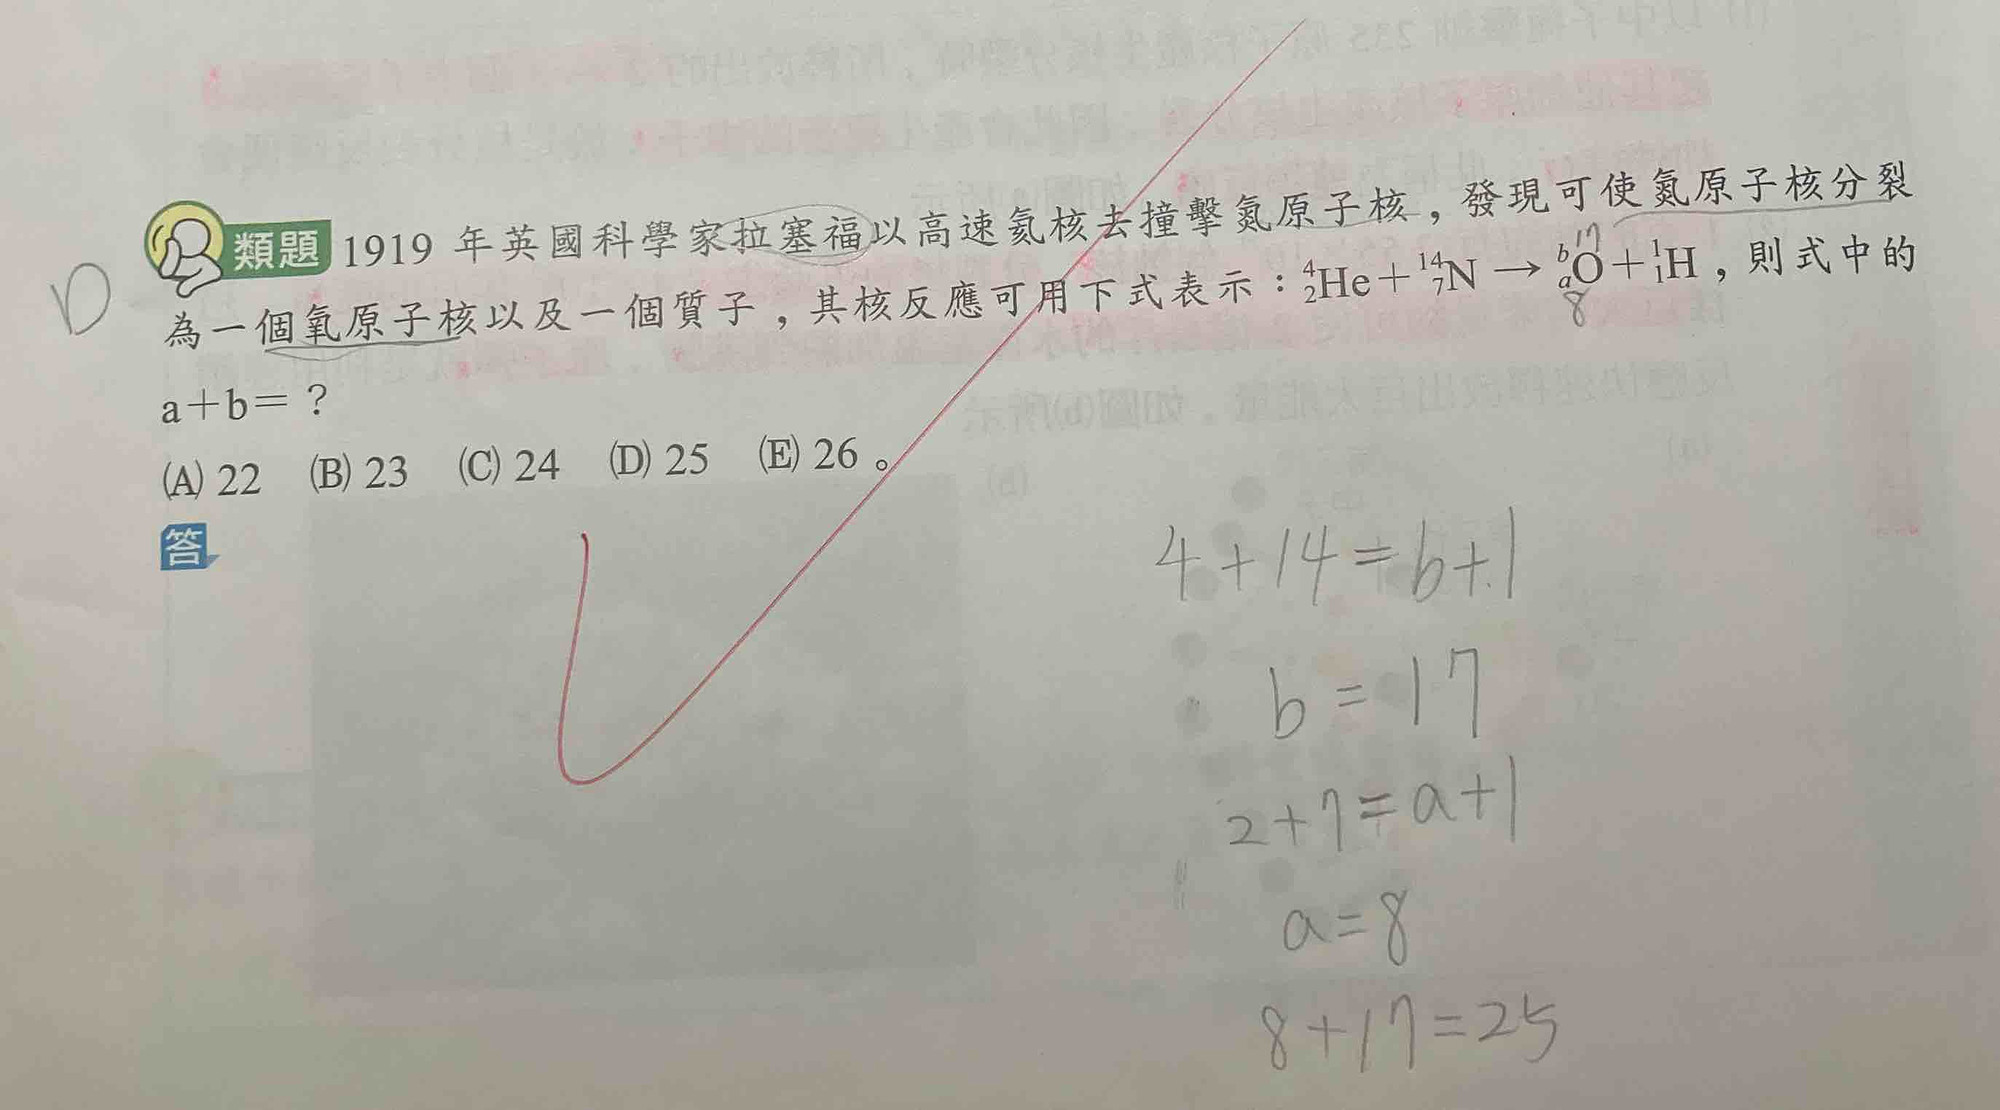 D
類題 1919 年英國科學家拉塞福以高速氦核去撞擊氮原子核，發現可使氮原子核分裂
為一個氧原子核以及一個質子，其核反應可用下式表示：⁴₂He＋¹⁴₇N → ᵇₐO＋¹₁H，則式中的
17
8
a＋b＝？
(A) 22 (B) 23 (C) 24 (D) 25 (E) 26。
答
4+14=b+1
b=17
2+7=a+1
a=8
8+17=25